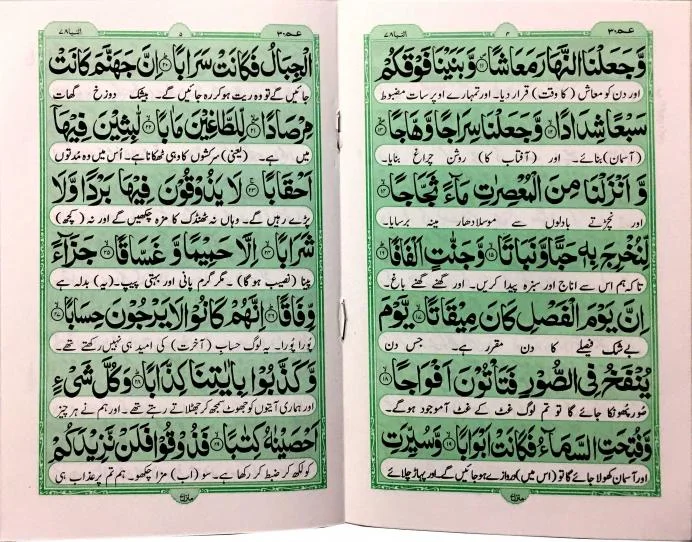 عـم ٣٠
٤
النبا ٧٨
وَّ جَعَلْنَا النَّهَارَ مَعَاشًا ﴿١١﴾ وَّ بَنَيْنَا فَوْقَكُمْ
اور دن کو معاش (کا وقت) قرار دیا۔ اور تمہارے اوپر سات مضبوط
سَبْعًا شِدَادًا ﴿١٢﴾ وَّ جَعَلْنَا سِرَاجًا وَّهَّاجًا ﴿١٣﴾
(آسمان) بنائے۔ اور (آفتاب کا) روشن چراغ بنایا۔
وَّ اَنْزَلْنَا مِنَ الْمُعْصِرٰتِ مَآءً ثَجَّاجًا ﴿١٤﴾
اور نچڑتے بادلوں سے موسلا دھار مینہ برسایا۔
لِّنُخْرِجَ بِهٖ حَبًّا وَّ نَبَاتًا ﴿١٥﴾ وَّ جَنّٰتٍ اَلْفَافًا ﴿١٦﴾
تاکہ ہم اس سے اناج اور سبزہ پیدا کریں۔ اور گھنے گھنے باغ۔
اِنَّ يَوْمَ الْفَصْلِ كَانَ مِيْقَاتًا ﴿١٧﴾ يَّوْمَ
بے شک فیصلے کا دن مقرر ہے۔ جس دن
يُنْفَخُ فِى الصُّوْرِ فَتَاْتُوْنَ اَفْوَاجًا ﴿١٨﴾
صور پھونکا جائے گا تو تم لوگ غٹ کے غٹ آ موجود ہوگے۔
وَّ فُتِحَتِ السَّمَآءُ فَكَانَتْ اَبْوَابًا ﴿١٩﴾ وَّ سُيِّرَتِ
اور آسمان کھولا جائے گا تو (اس میں) دروازے ہو جائیں گے۔ اور پہاڑ چلائے
عـم ٣٠
٥
النبا ٧٨
الْجِبَالُ فَكَانَتْ سَرَابًا ﴿٢٠﴾ اِنَّ جَهَنَّمَ كَانَتْ
جائیں گے تو وہ ریت ہو کر رہ جائیں گے۔ بیشک دوزخ گھات
مِرْصَادًا ﴿٢١﴾ لِّلطَّاغِيْنَ مَاٰبًا ﴿٢٢﴾ لّٰبِثِيْنَ فِيْهَاۤ
میں ہے۔ (یعنی) سرکشوں کا وہی ٹھکانا ہے۔ اُس میں وہ مُدتوں
اَحْقَابًا ﴿٢٣﴾ لَا يَذُوْقُوْنَ فِيْهَا بَرْدًا وَّلَا
پڑے رہیں گے۔ وہاں نہ ٹھنڈک کا مزہ چکھیں گے اور نہ (کچھ)
شَرَابًا ﴿٢٤﴾ اِلَّا حَمِيْمًا وَّ غَسَّاقًا ﴿٢٥﴾ جَزَآءً
پینا (نصیب ہو گا)۔ مگر گرم پانی اور بہتی پیپ۔ (یہ) بدلہ ہے
وِّفَاقًا ﴿٢٦﴾ اِنَّهُمْ كَانُوْا لَا يَرْجُوْنَ حِسَابًا ﴿٢٧﴾
پُورا پُورا۔ یہ لوگ حساب (آخرت) کی امید ہی نہیں رکھتے تھے۔
وَّ كَذَّبُوْا بِاٰيٰتِنَا كِذَّابًا ﴿٢٨﴾ وَكُلَّ شَىْءٍ
اور ہماری آیتوں کو جھوٹ سمجھ کر جھٹلاتے رہتے تھے۔ اور ہم نے ہر چیز
اَحْصَيْنٰهُ كِتٰبًا ﴿٢٩﴾ فَذُوْقُوْا فَلَنْ نَّزِيْدَكُمْ
کو لکھ کر ضبط کر رکھا ہے۔ سو (اب) مزا چکھو۔ ہم تم پر عذاب ہی